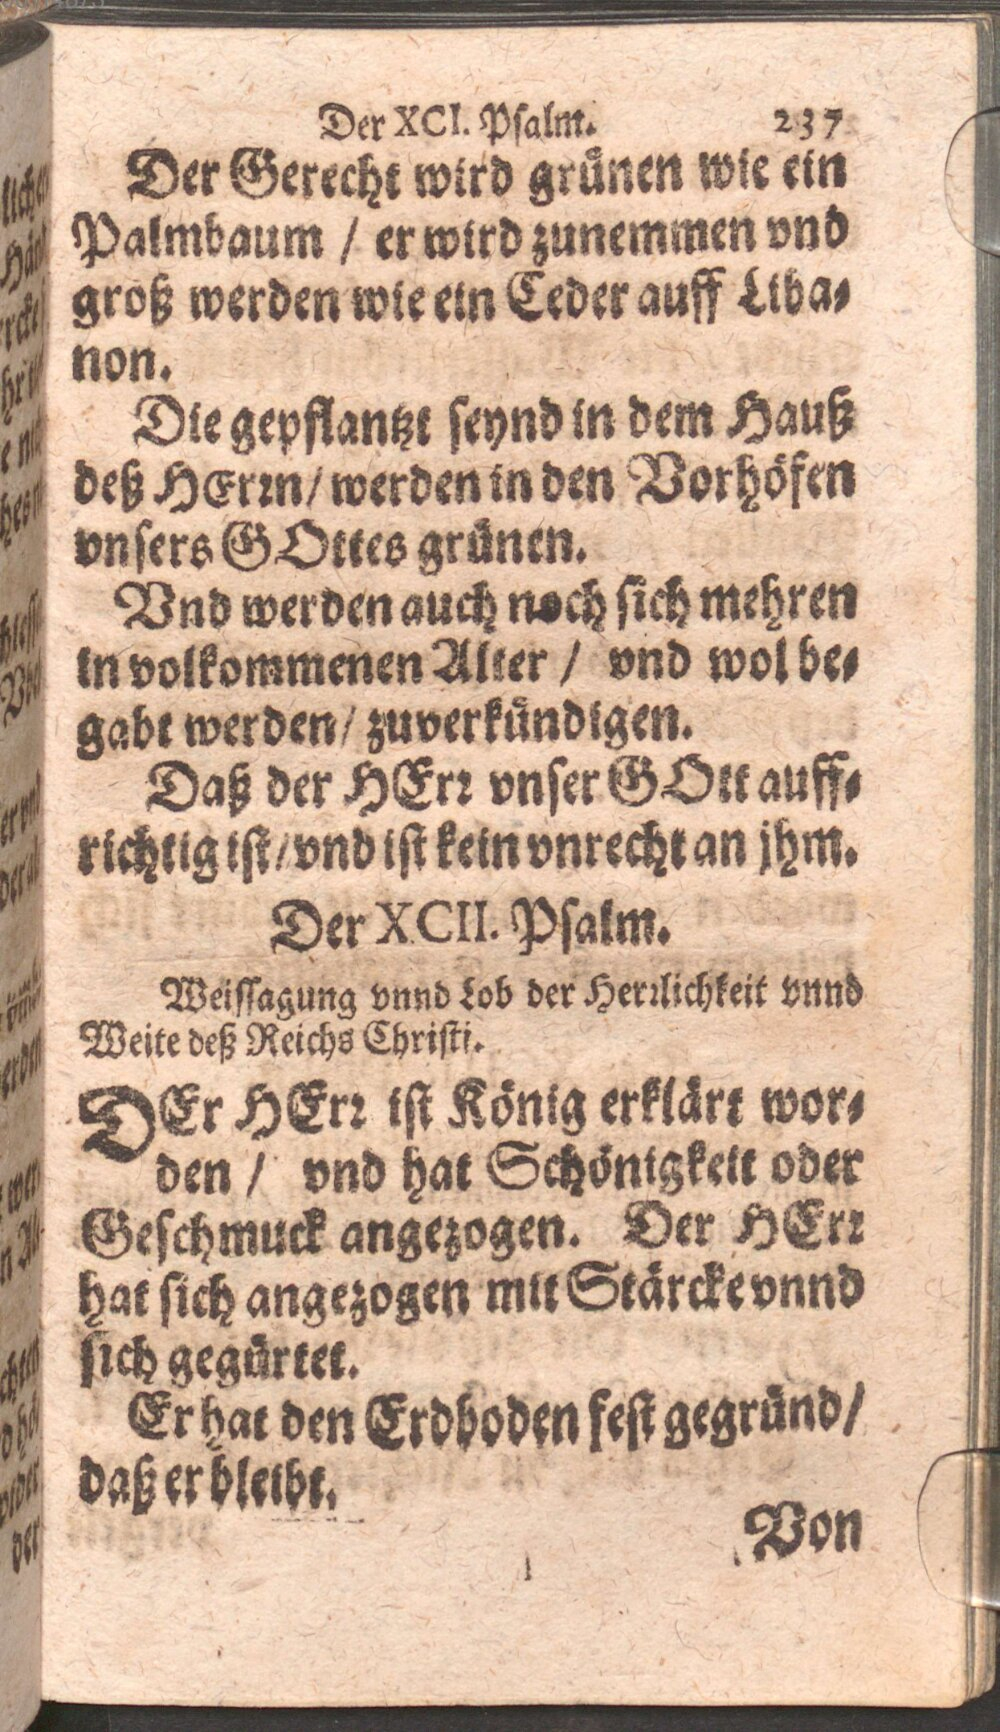 Der XCI. Psalm. 237
Der Gerecht wird grünen wie ein
Palmbaum / er wird zunemmen vnd
groß werden wie ein Ceder auff Liba-
non.
Die gepflantzt seynd in dem Hauß
deß HErrn / werden in den Vorhöfen
vnsers GOttes grünen.
Vnd werden auch noch sich mehren
in volkommenen Alter / vnd wol be-
gabt werden / zuverkündigen.
Daß der HErr vnser GOtt auff-
richtig ist / vnd ist kein vnrecht an jhm.
Der XCII. Psalm.
Weissagung vnnd Lob der Herrlichkeit vnnd
Weite deß Reichs Christi.
DEr HErr ist König erklärt wor-
den / vnd hat Schönigkeit oder
Geschmuck angezogen. Der HErr
hat sich angezogen mit Stärcke vnnd
sich gegürtet.
Er hat den Erdboden fest gegründ /
daß er bleibt.
Von